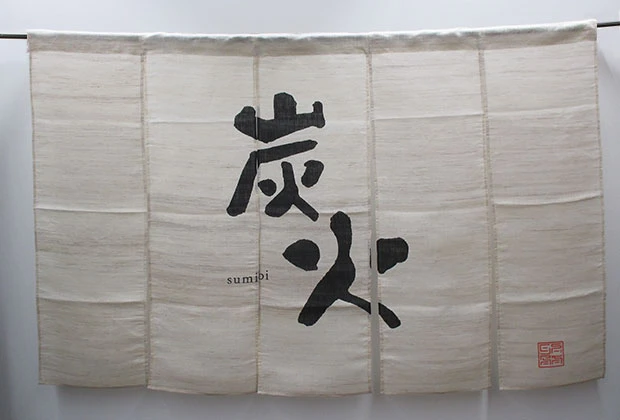 炭火
sumibi